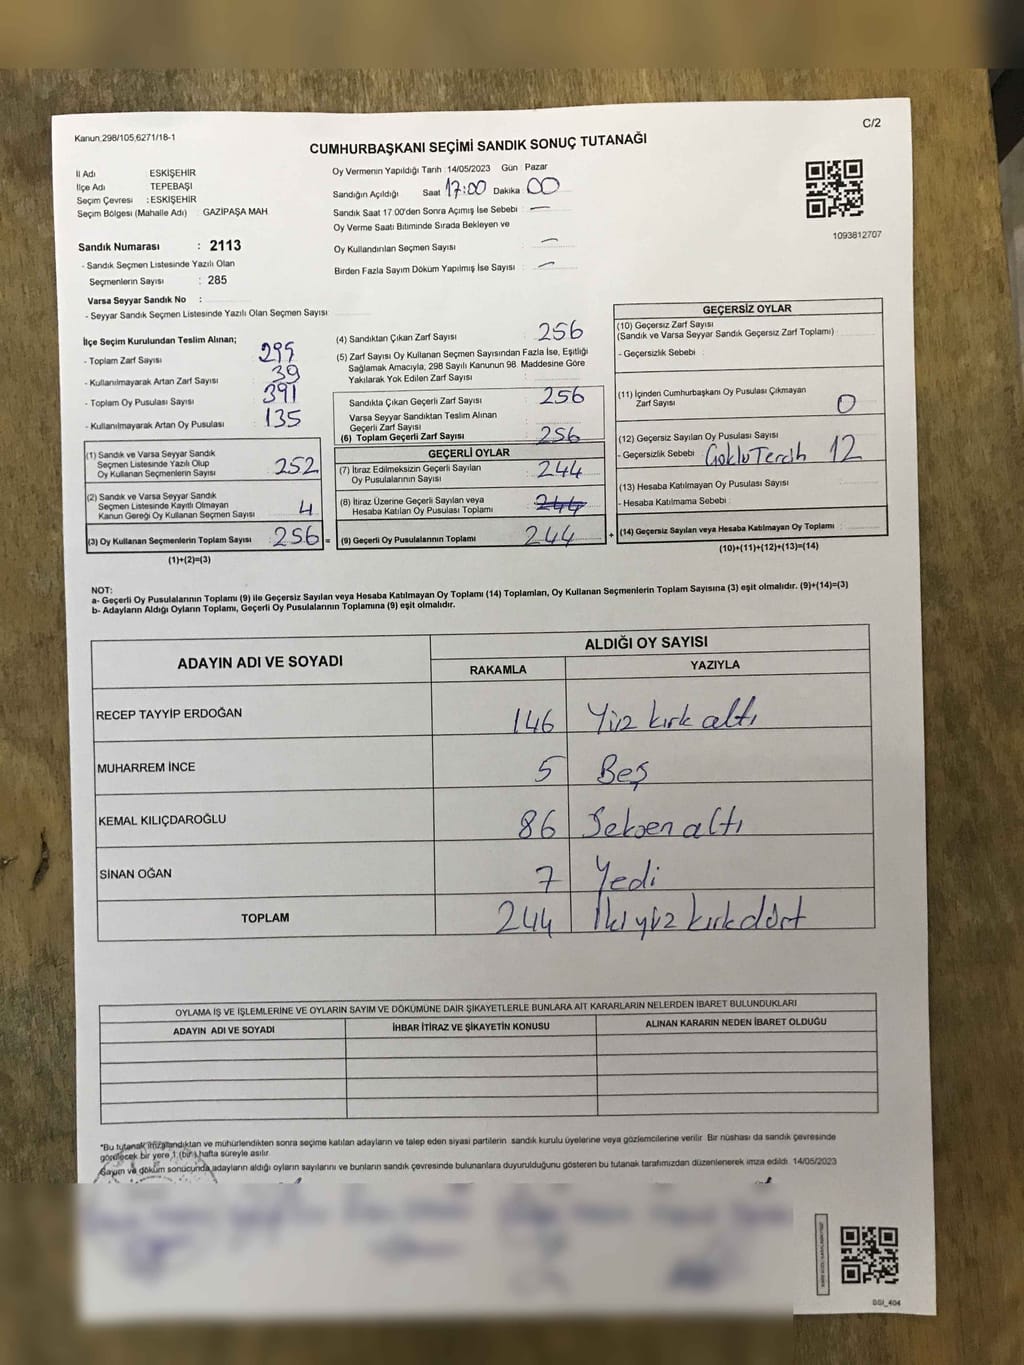 Kanun 298/105,6271/18-1
C/2
CUMHURBAŞKANI SEÇİMİ SANDIK SONUÇ TUTANAĞI
İl Adı ESKİŞEHİR
İlçe Adı TEPEBAŞI
Seçim Çevresi : ESKİŞEHİR
Seçim Bölgesi (Mahalle Adı) : GAZİPAŞA MAH
Oy Vermenin Yapıldığı Tarih : 14/05/2023 Gün : Pazar
Sandığın Açıldığı Saat 17:00 Dakika 00
Sandık Saat 17.00'den Sonra Açımış İse Sebebi : —
Oy Verme Saati Bitiminde Sırada Bekleyen ve
Oy Kullandırılan Seçmen Sayısı —
Birden Fazla Sayım Döküm Yapılmış İse Sayısı : —
1093812707
Sandık Numarası : 2113
- Sandık Seçmen Listesinde Yazılı Olan
Seçmenlerin Sayısı : 285
Varsa Seyyar Sandık No :
- Seyyar Sandık Seçmen Listesinde Yazılı Olan Seçmen Sayısı
İlçe Seçim Kurulundan Teslim Alınan;
- Toplam Zarf Sayısı 295
- Kullanılmayarak Artan Zarf Sayısı 39
- Toplam Oy Pusulası Sayısı 391
- Kullanılmayarak Artan Oy Pusulası 135
(1) Sandık ve Varsa Seyyar Sandık
Seçmen Listesinde Yazılı Olup
Oy Kullanan Seçmenlerin Sayısı 252
(2) Sandık ve Varsa Seyyar Sandık
Seçmen Listesinde Kayıtlı Olmayan
Kanun Gereği Oy Kullanan Seçmen Sayısı 4
(3) Oy Kullanan Seçmenlerin Toplam Sayısı 256 =
(1)+(2)=(3)
(4) Sandıktan Çıkan Zarf Sayısı 256
(5) Zarf Sayısı Oy Kullanan Seçmen Sayısından Fazla İse, Eşitliği
Sağlamak Amacıyla, 298 Sayılı Kanunun 98. Maddesine Göre
Yakılarak Yok Edilen Zarf Sayısı
Sandıkta Çıkan Geçerli Zarf Sayısı 256
Varsa Seyyar Sandıktan Teslim Alınan
Geçerli Zarf Sayısı
(6) Toplam Geçerli Zarf Sayısı 256
GEÇERLİ OYLAR
(7) İtiraz Edilmeksizin Geçerli Sayılan
Oy Pusulalarının Sayısı 244
(8) İtiraz Üzerine Geçerli Sayılan veya
Hesaba Katılan Oy Pusulası Toplamı 244
(9) Geçerli Oy Pusulalarının Toplamı 244 +
GEÇERSİZ OYLAR
(10) Geçersiz Zarf Sayısı
(Sandık ve Varsa Seyyar Sandık Geçersiz Zarf Toplamı)
- Geçersizlik Sebebi :
(11) İçinden Cumhurbaşkanı Oy Pusulası Çıkmayan
Zarf Sayısı 0
(12) Geçersiz Sayılan Oy Pusulası Sayısı
- Geçersizlik Sebebi Çoklu Tercih 12
(13) Hesaba Katılmayan Oy Pusulası Sayısı
- Hesaba Katılmama Sebebi
(14) Geçersiz Sayılan veya Hesaba Katılmayan Oy Toplamı
(10)+(11)+(12)+(13)=(14)
NOT:
a- Geçerli Oy Pusulalarının Toplamı (9) ile Geçersiz Sayılan veya Hesaba Katılmayan Oy Toplamı (14) Toplamları, Oy Kullanan Seçmenlerin Toplam Sayısına (3) eşit olmalıdır. (9)+(14)=(3)
b- Adayların Aldığı Oyların Toplamı, Geçerli Oy Pusulalarının Toplamına (9) eşit olmalıdır.
ADAYIN ADI VE SOYADI
ALDIĞI OY SAYISI
RAKAMLA YAZIYLA
RECEP TAYYİP ERDOĞAN 146 Yüz kırk altı
MUHARREM İNCE 5 Beş
KEMAL KILIÇDAROĞLU 86 Seksen altı
SİNAN OĞAN 7 Yedi
TOPLAM 244 İki yüz kırk dört
OYLAMA İŞ VE İŞLEMLERİNE VE OYLARIN SAYIM VE DÖKÜMÜNE DAİR ŞİKAYETLERLE BUNLARA AİT KARARLARIN NELERDEN İBARET BULUNDUKLARI
ADAYIN ADI VE SOYADI İHBAR İTİRAZ VE ŞİKAYETİN KONUSU ALINAN KARARIN NEDEN İBARET OLDUĞU
*Bu tutanak imzalandıktan ve mühürlendikten sonra seçime katılan adayların ve talep eden siyasi partilerin sandık kurulu üyelerine veya gözlemcilerine verilir. Bir nüshası da sandık çevresinde
görülecek bir yere 1 (bir) hafta süreyle asılır.
Sayım ve döküm sonucunda adayların aldığı oyların sayılarını ve bunların sandık çevresinde bulunanlara duyurulduğunu gösteren bu tutanak tarafımızdan düzenlenerek imza edildi. 14/05/2023